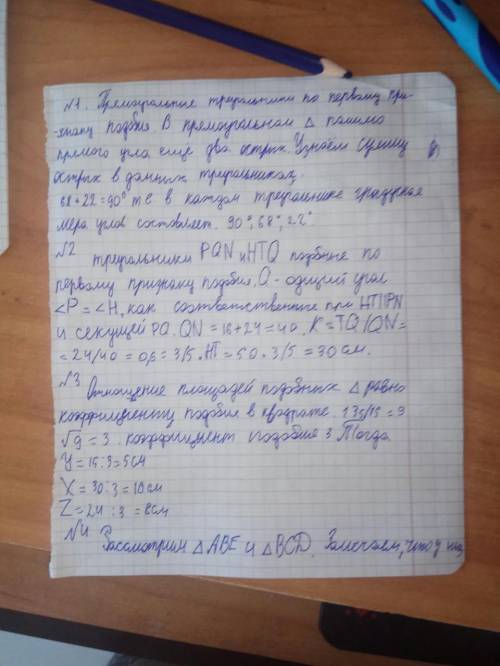 №1. Прямоугольные треугольники по первому при-
-знаку подобия В прямоугольном Δ помимо
прямого угла еще два острых. Узнаём сумму
острых в данных треугольниках.
68+22=90° т е в каждом треугольнике градусная
мера углов составляет. 90°, 68°, 22°.
№2
треугольники PQN и HTQ подобные по
первому признаку подобия, Q - общий угол
<P = <H, как соответственные при HT||PN
и секущей PQ. QN = 16+24=40. K = TQ/QN=
=24/40 = 0,6 = 3/5. HT = 50 · 3/5 = 30 см.
№3
Отношение площадей подобных Δ равно
коэффициенту подобия в квадрате 135/15 = 9
√9 = 3. коэффициент подобия 3 Тогда
Y = 15:3=5см
X = 30:3=10см
Z = 24:3=8см
№4
Рассмотрим ΔABE и ΔBCD. Замечаем, что у них